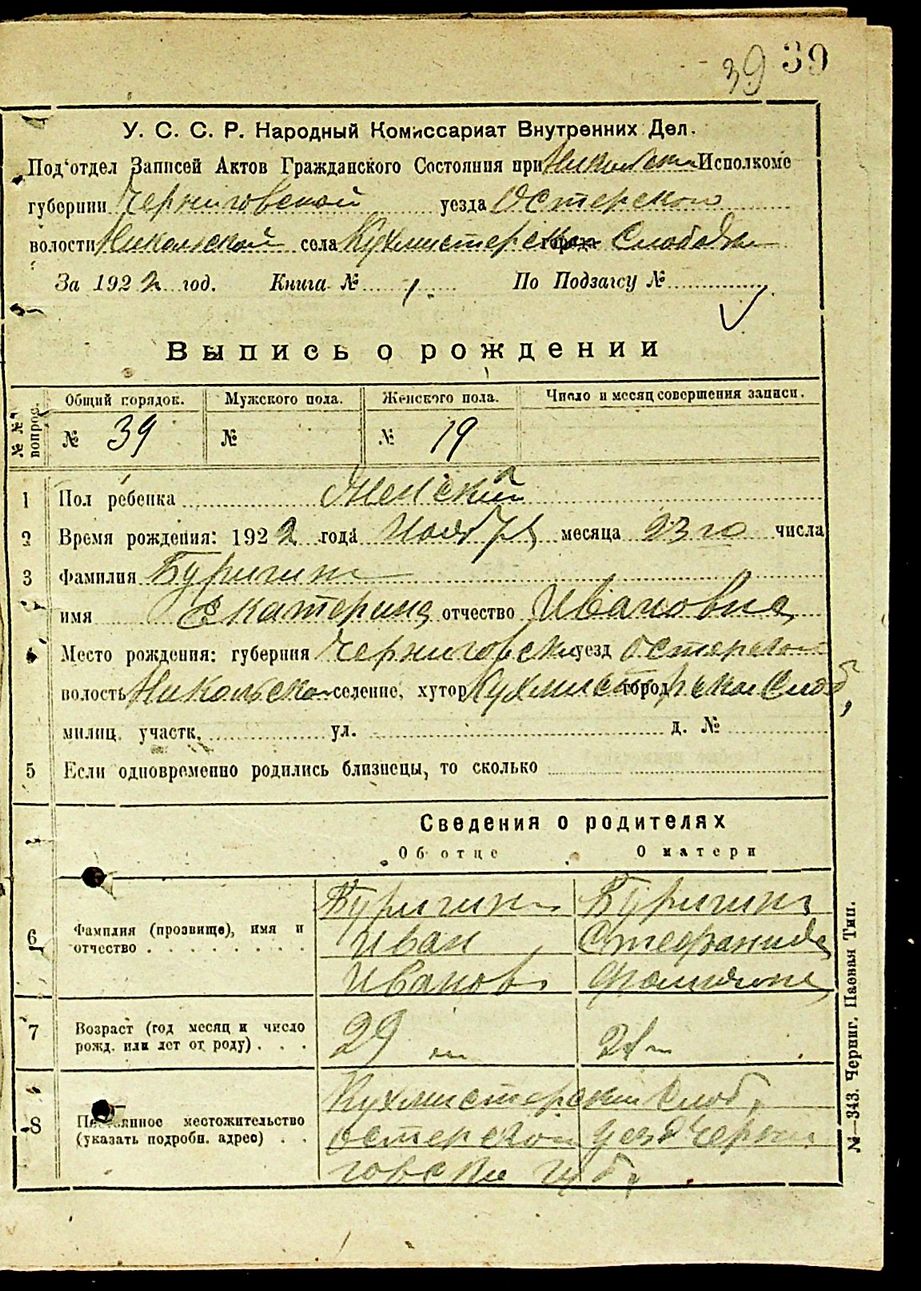 39 39
У. С. С. Р. Народный Комиссариат Внутренних Дел.
Под‘отдел Записей Актов Гражданского Состояния при Никольском Исполкоме
губернии Черниговской уезда Остерского
волости Никольской села Кухмистерская Слободка
За 1922 год. Книга № 1. По Подзагсу №
Выпись о рождении
№№ вопрос. Общий порядок. Мужского пола. Женского пола. Число и месяц совершения записи.
№ 39 № № 19
1 Пол ребенка Женский
2 Время рождения: 1922 года Ноября месяца 23го числа
3 Фамилия
имя Екатерина отчество Ивановна
4 Место рождения: губерния Черниговская уезд Остерский
волость Никольская селение, хутор город Кухмистерская Слоб,
милиц. участк. ул. д. №
5 Если одновременно родились близнецы, то сколько
Сведения о родителях
Об отце О матери
6 Фамилия (прозвище), имя и
отчество
Иван Стефанида
Иванов
7 Возраст (год месяц и число
рожд. или лет от роду)
29 л
8 Постоянное местожительство
(указать подробн. адрес)
Кухмистерская Слоб,
Остерской уезд Черни
говские губ,
№—343. Черниг. Паевая Тип.